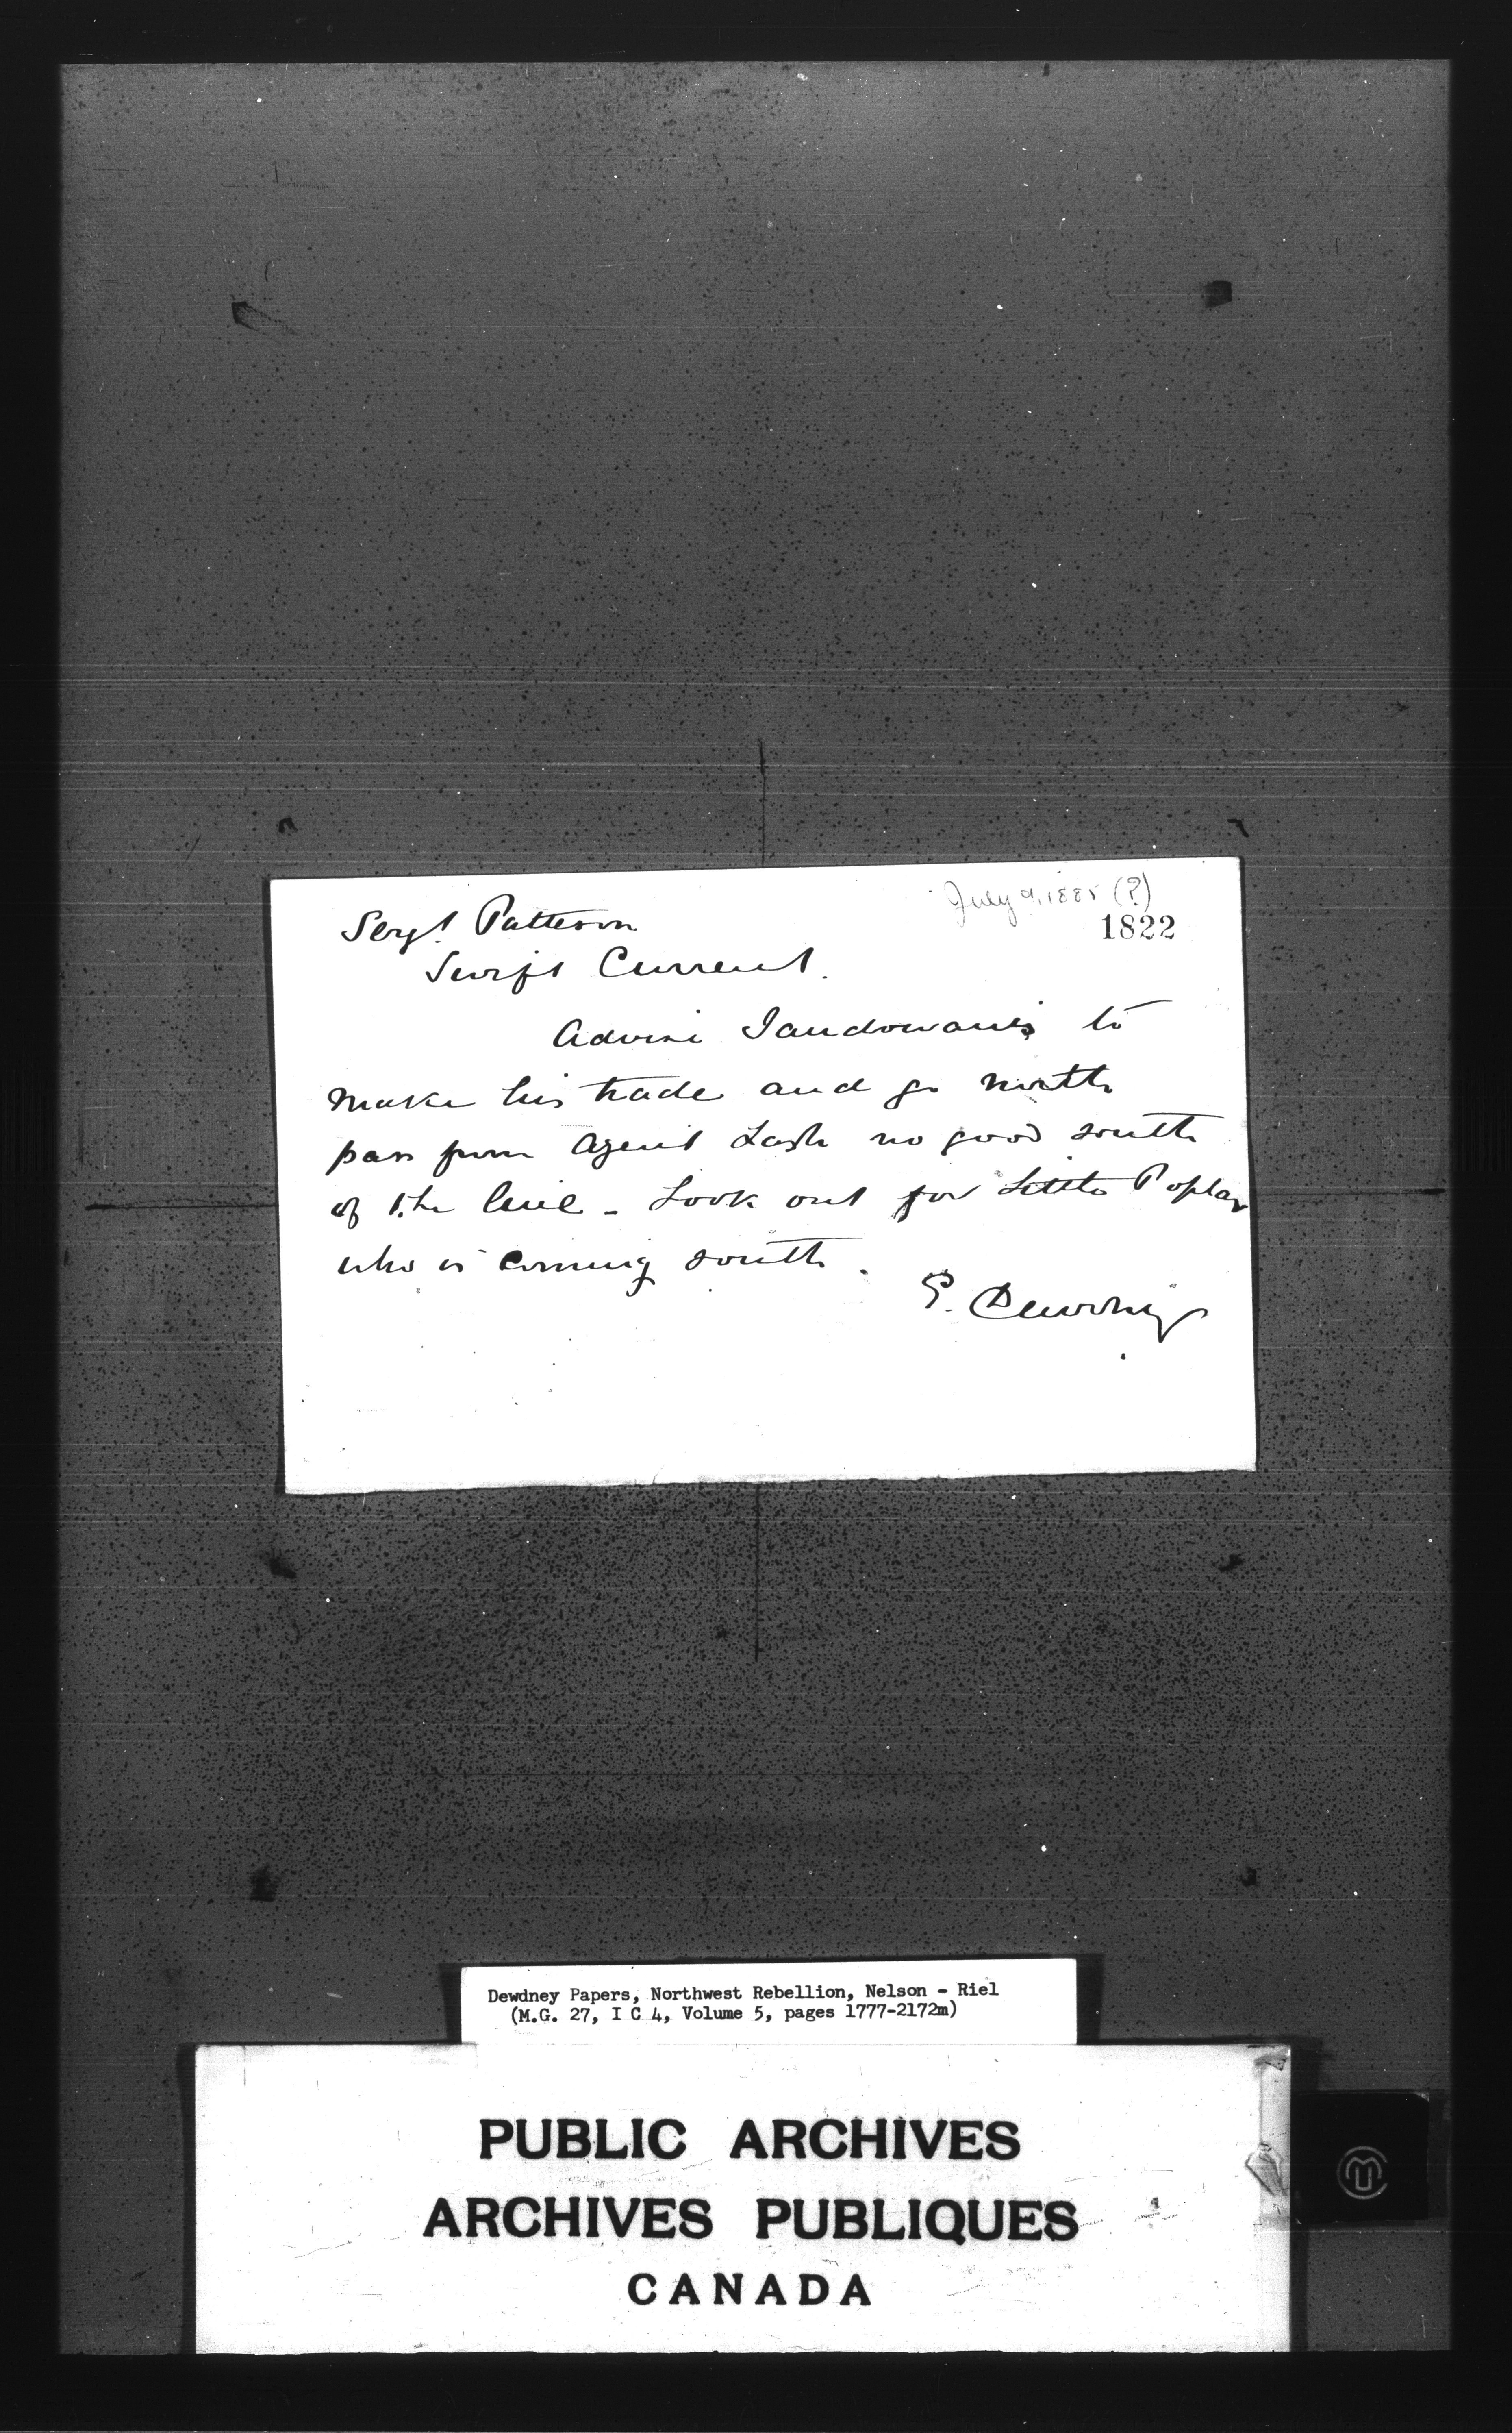 July 9, 1885 (?)
1822
Sergt. Patterson
Swift Current.
Advise to
make his trade and go north
pass from Agent Lash no good south
of the line - Look out for Little Poplar
who is coming south.
E. Dewdney
Dewdney Papers, Northwest Rebellion, Nelson - Riel
(M.G. 27, I C 4, Volume 5, pages 1777-2172m)
PUBLIC ARCHIVES
ARCHIVES PUBLIQUES
CANADA